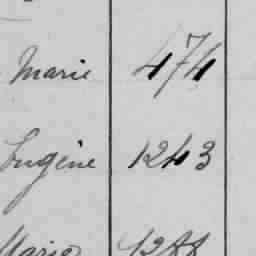 Marie 474
Eugène 1243
Marie 1288